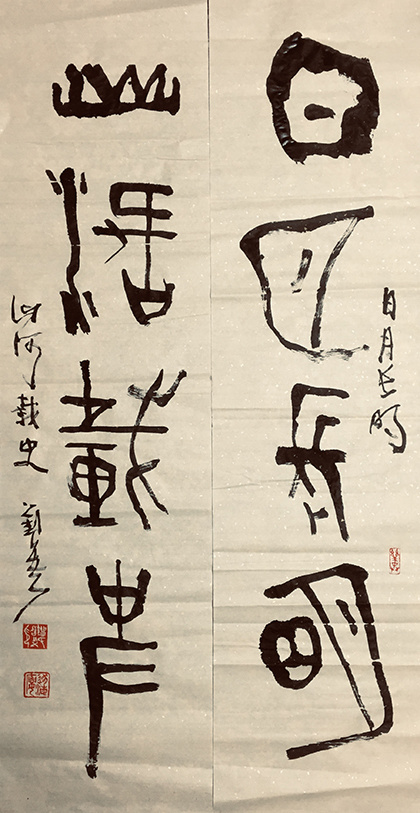 日月長明
日月长明
山河載史
山河載史